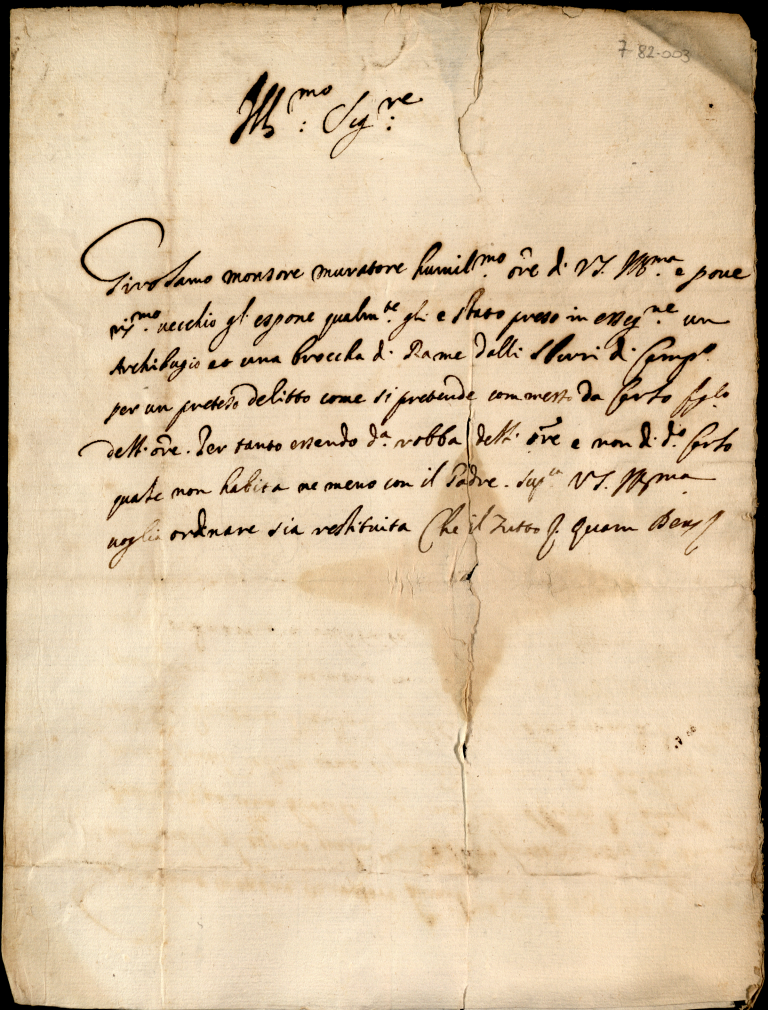 7 82-003
Ill.mo: Sig.re:
Girolamo monsore muratore humil.mo ōre di VS. Ill.ma e pove
riss.mo vecchio gli espone qualm.te gli e stato preso in esseq.ne un
Archibugio et una broccha di Rame dalli sbirri di Camp.o
per un preteso delitto come si pretende commesso da Carlo figlo
dell'ōre. Per tanto essendo d.a robba dell'ōre e non di d.o Carlo
quale non habita ne meno con il Padre. Sup.ca VS. Ill.ma
voglia ordinare sia restituita Che il tutto quam Deus